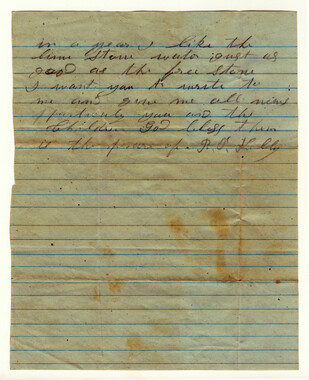 in a year I like the
lime Stone water just as
good as the free Stone
I want you to write to
me and give me all news
you and the
Children God bless them
is the prair of